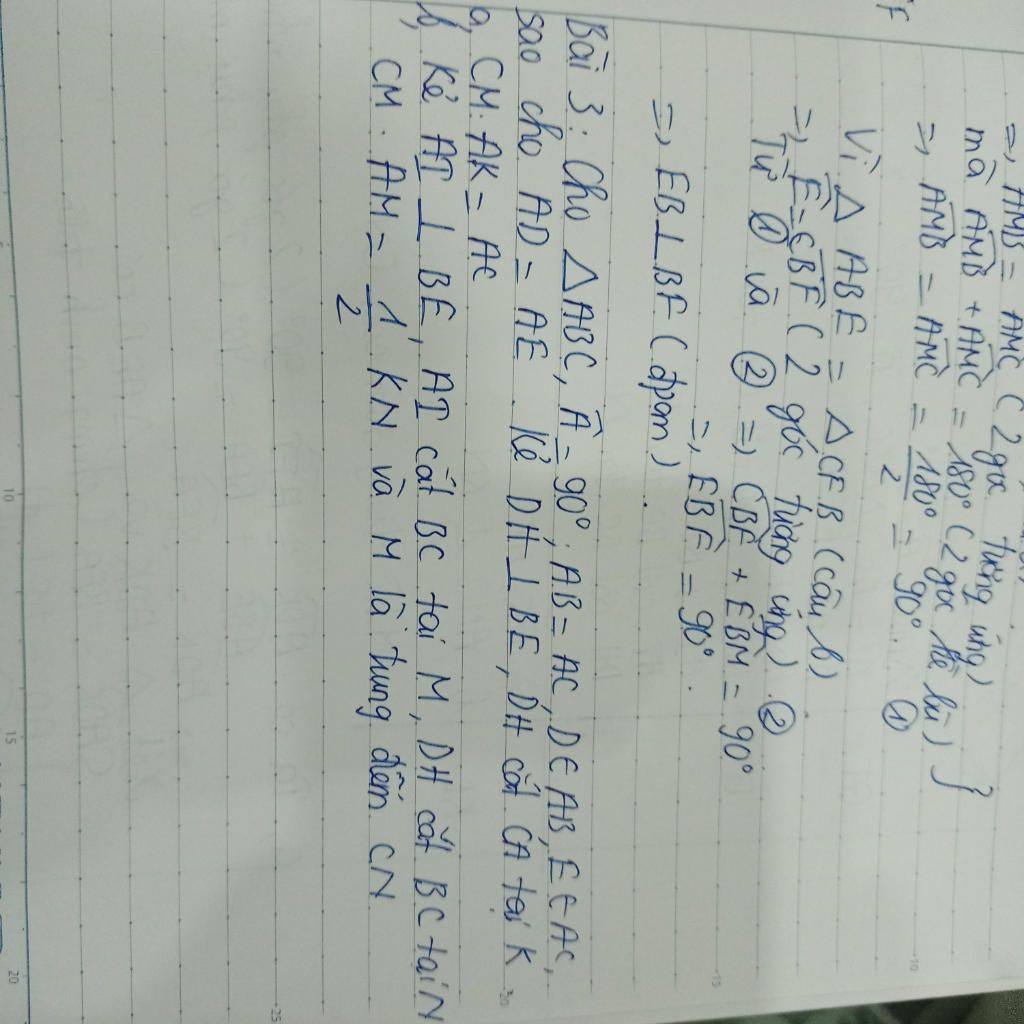 F
=, AMB = AMC (2 góc tương ứng)
mà AMB + AMC = 180° (2 góc kề bù) }
=, AMB = AMC = 180°/2 = 90°. ①
Vì △ ABE = △ CFB (câu b)
=, E = CBF (2 góc tương ứng) ②
Từ ① và ② =, CBF + EBM = 90°
=, EBF = 90°.
=, EB ⊥ BF (đpcm).
Bài 3: Cho △ABC, A = 90°, AB = AC, D ∈ AB, E ∈ AC,
sao cho AD = AE. Kẻ DH ⊥ BE, DH cắt CA tại K
a, CM: AK = AC
b, Kẻ AI ⊥ BE, AI cắt BC tại M, DH cắt BC tại N
CM: AM = 1/2 KN và M là trung điểm CN
10
15
20
-10
-15
-20
-25